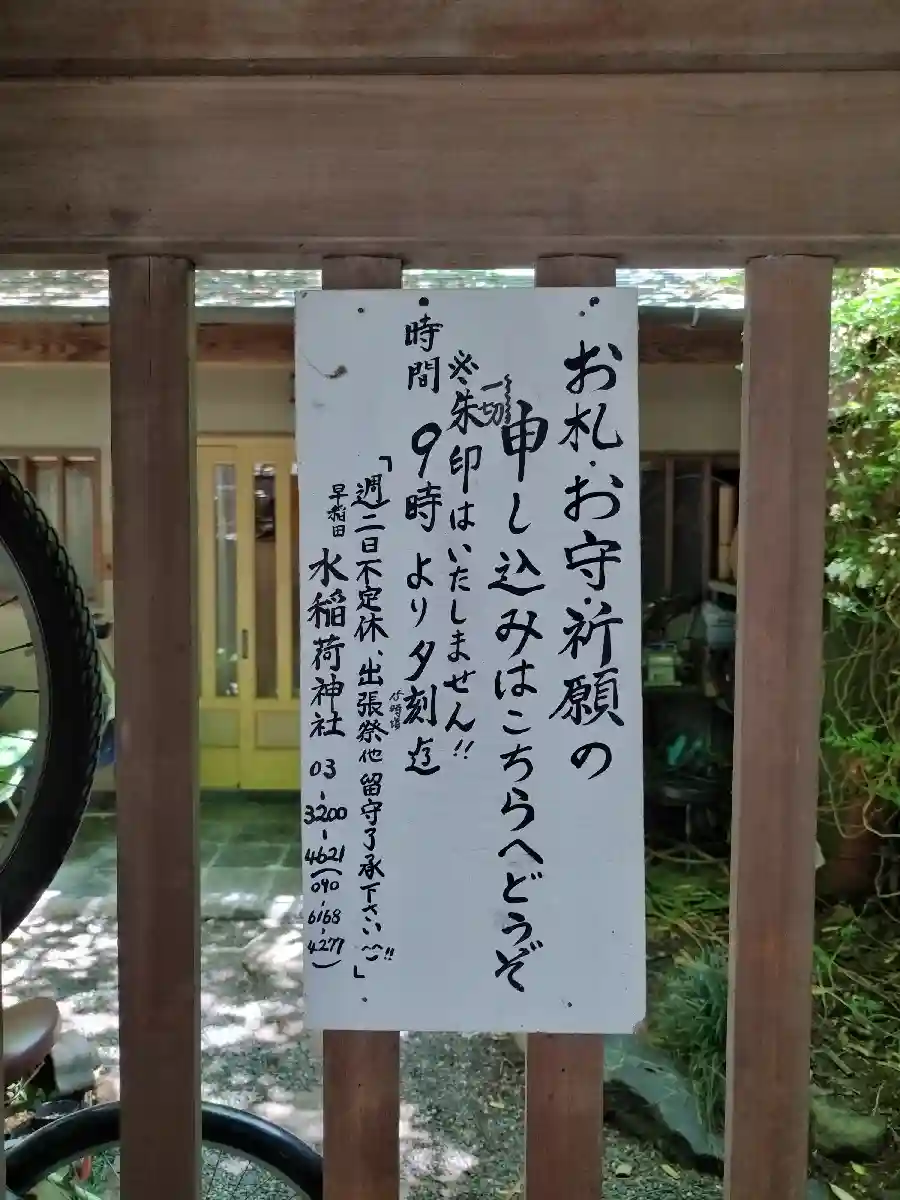 お札・お守・祈願の
申し込みはこちらへどうぞ
※朱印は一切いたしません!!
時間 9時より夕刻迄
「週二日不定休、出張祭他留守了承下さい!!」
早稲田 水稲荷神社 03-3200-4621(090-6168-4277)